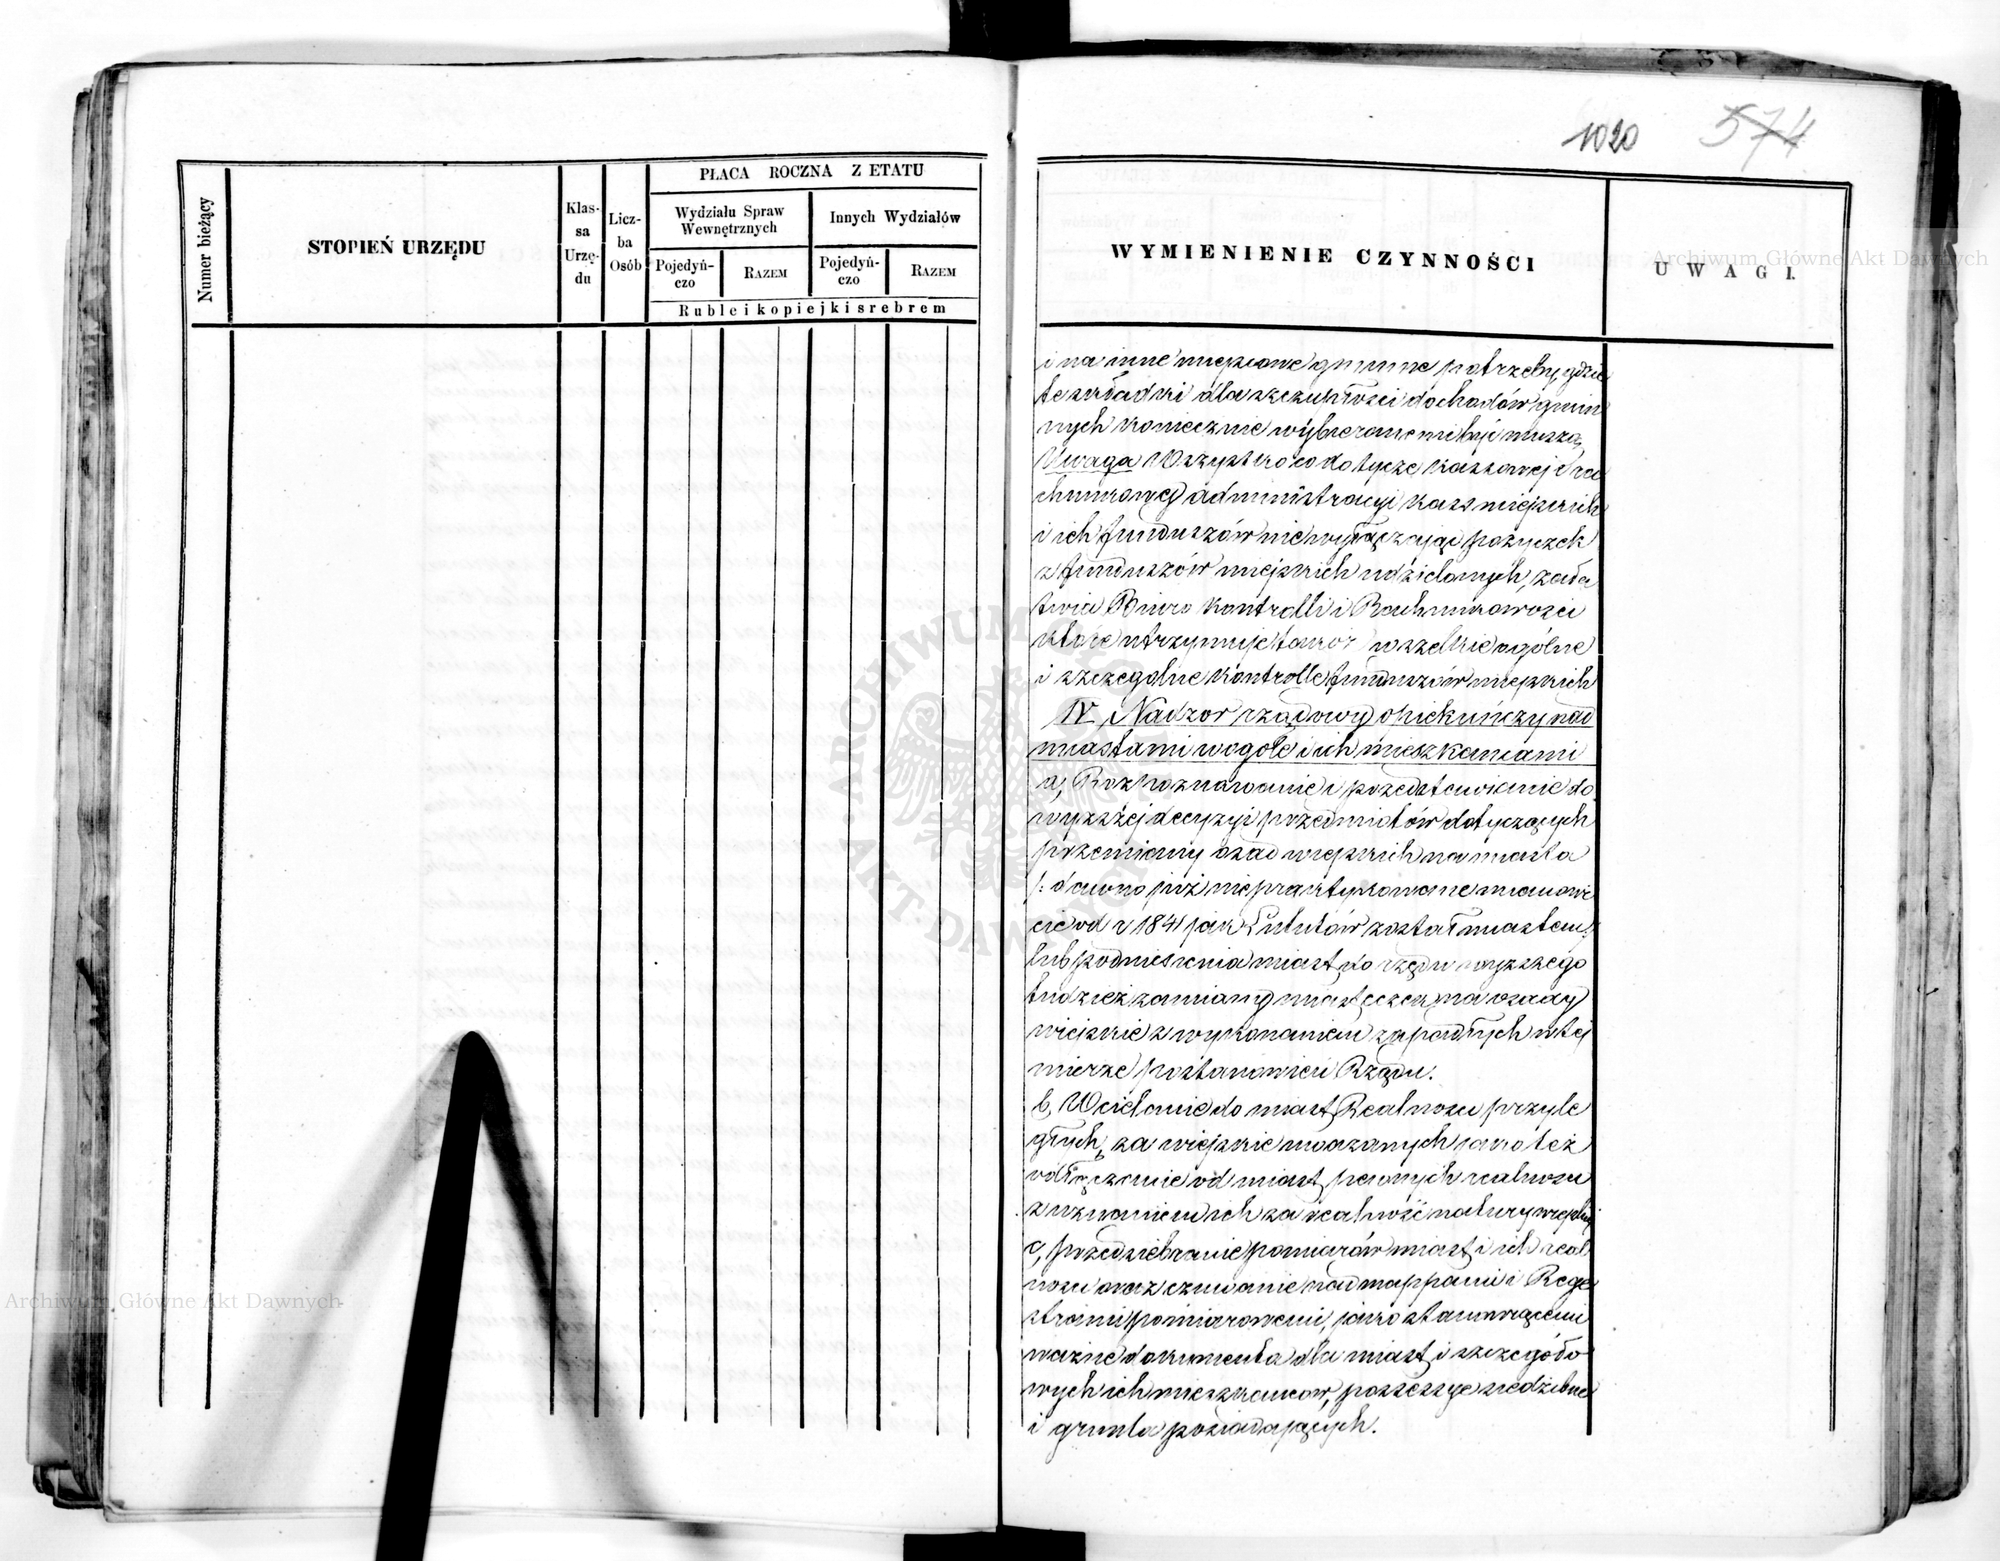 Numer bieżący
STOPIEŃ URZĘDU
Klas-
sa
Urzę-
du
Licz-
ba
Osób
PŁACA ROCZNA Z ETATU
Wydziału Spraw
Wewnętrznych
Innych Wydziałów
Pojedyń-
czo
RAZEM
Pojedyń-
czo
RAZEM
Ruble i kopiejki srebrem
1020 574
WYMIENIENIE CZYNNOŚCI
UWAGI.
i na inne miejscowe gminne potrzeby, gdzie
te składki dla szczupłości dochodów gmin
nych koniecznie wybieranemi być muszą,
Uwaga Wszystko co dotycze kassowej i ra
chunkowej administracyi kass miejskich
i ich funduszów nie wyłączając pożyczek
z funduszów miejskich udzielonych, zała
twia Biuro Kontrolli i Rachunkowości
które utrzymuje takoż wszelkie ogólne
i szczególne kontrolle funduszów miejskich
IV, Nadzor rządowy opiekuńczy nad
miastami wogóle i ich mieszkańcami
a, Rozpoznawanie i przedstawianie do
wyższéj decyzyi przedmiotów dotyczących
przemiany osad wiejskich na miasta
/: dawno już niepraktykowane mianowi
cie od r 1841 jak Lututów został miastem :/
lub podniesienia miast do rzędu wyższego
tudzież zamiany miasteczek na osady
wiejskie z wykonaniem zapadłych w tej
mierze postanowień Rządu.
b, Wcielanie do miast Realności przyle
głych, za wiejskie uważanych jako też
odłączenie od miast pewnych realności
z uznaniem ich za realność natury wiejskiej
c, przedsiębranie pomiarów miast i ich real
ności oraz czuwanie nad mappami i Reje
strami pomiarowemi, jako stanowiącemi
ważne dokumenta dla miast i szczegóło
wych ich mieszkańców, possessye siedzibne
i grunta posiadających.
ARCHIWUM GŁÓWNE AKT DAWNYCH
Archiwum Główne Akt Dawnych
Archiwum Główne Akt Dawnych